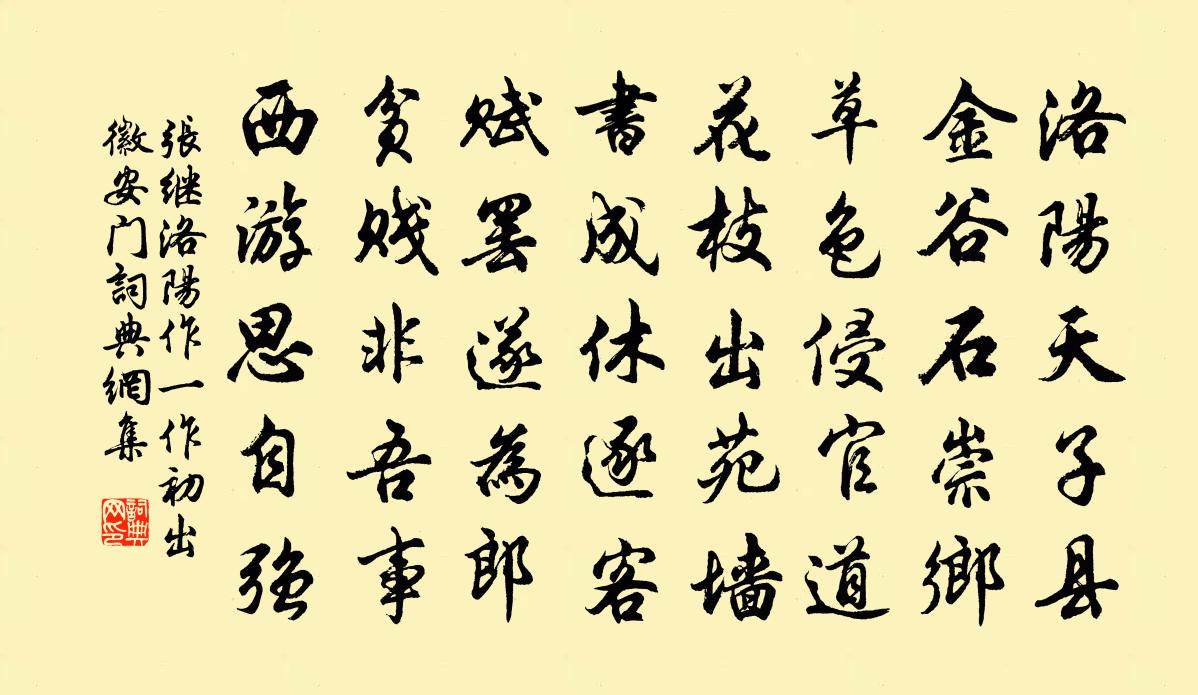 洛陽天子县
金谷石崇鄉
草色侵官道
花枝出苑墙
書成休逐客
赋罢遂為郎
贫贱非吾事
西游思自强
張继洛陽作一作初出
徽安门詞典網集
詞典网印